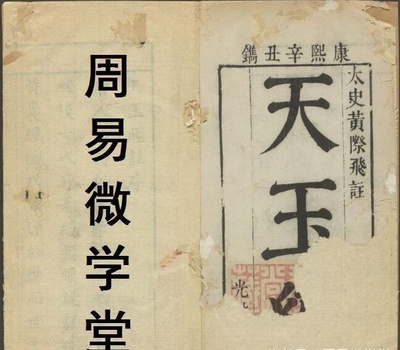 康熙辛丑鐫
太史黃際飛註
天玉
光
周易微学堂